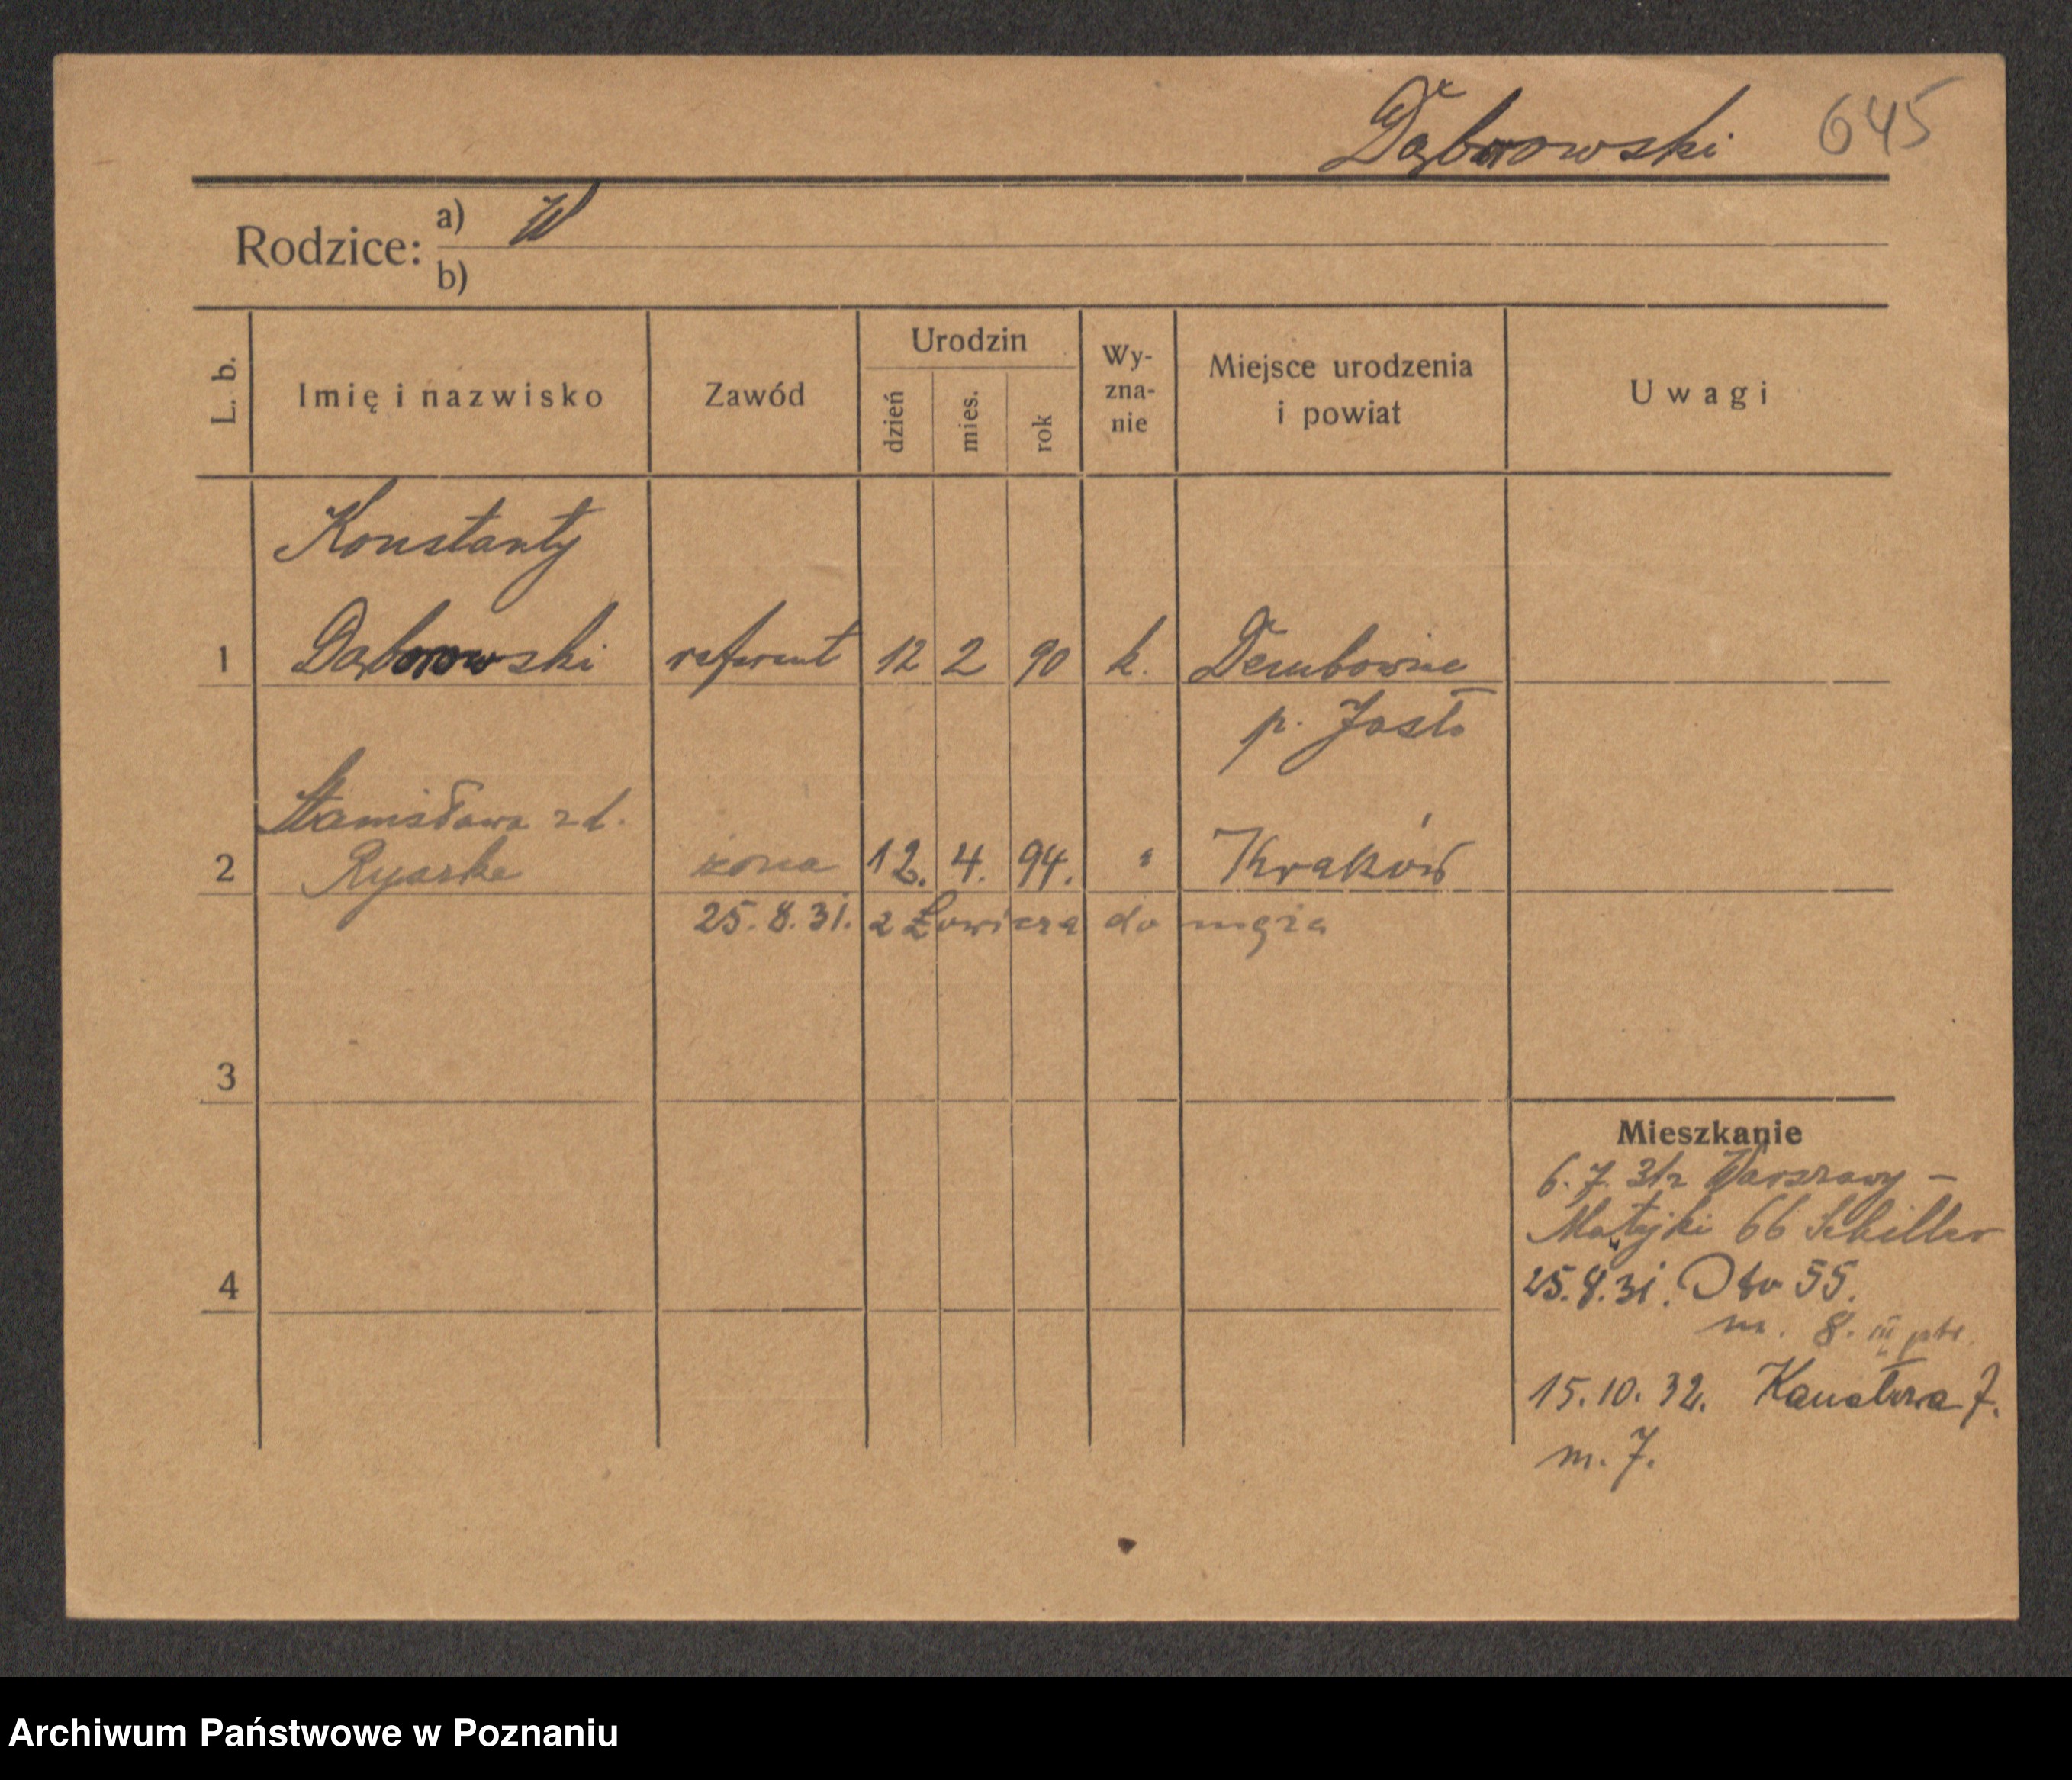 Dąbrowski 645
Rodzice: a) W
b)
L. b. Imię i nazwisko Zawód Urodzin dzień mies. rok Wy-zna-nie Miejsce urodzenia i powiat Uwagi
Konstanty
1 Dąbrowski referent 12 2 90 k.
p. Jasło
Stanisława z d.
2 żona 12. 4. 94. " Kraków
25.8.31. z Łowicza do męża
3
4
Mieszkanie
6.7.31 z Warszawy –
Matejki 66 Schiller
25.8.31. 55.
m. 8. III ptr.
15.10.32. Kanałowa 7.
m. 7.
Archiwum Państwowe w Poznaniu